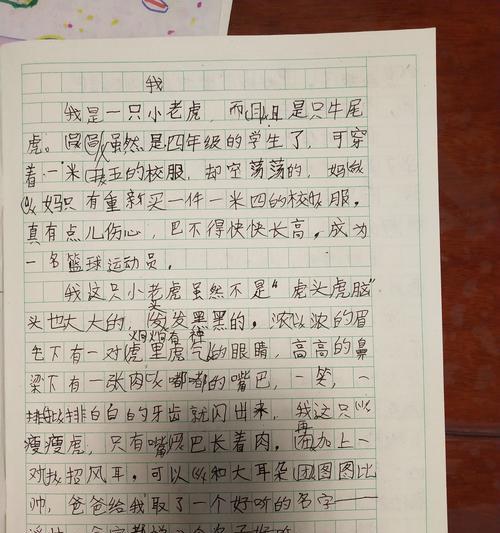 我
我是一只小老虎，而且是只牛尾
虎。虽然是四年级的学生了，可穿
着一米五的校服，却空荡荡的，妈
妈只有重新买一件一米四的校服。
真有点儿伤心，巴不得快快长高，成为
一名篮球运动员。
我这只小老虎虽然不是“虎头虎脑”
头也大大的，头发黑黑的。浓浓的眉
炯炯有神
毛下有一对虎里虎气的眼睛，高高的鼻
梁下有一张肉嘟嘟的嘴巴，一笑，一
排排白白的牙齿就闪出来，我这只
瘦瘦虎，只有嘴巴长着肉。再加上一
对招风耳，可以和大耳朵图图比
帅，爸爸给我取了一个好听的名字——